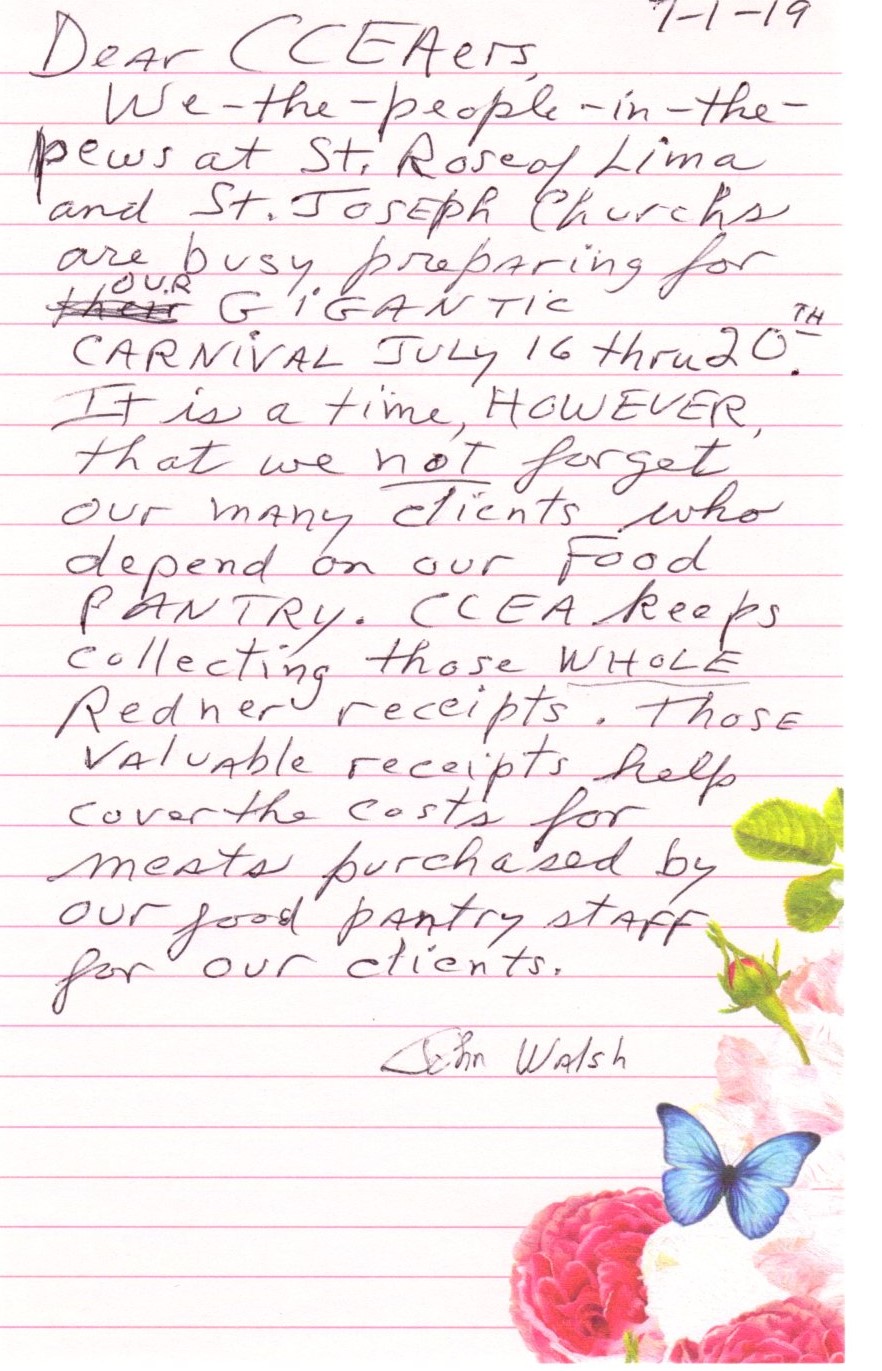 7-1-19
Dear CCEAers,
We-the-people-in-the-
pews at St. Rose of Lima
and St. Joseph Churchs
are busy preparing for
their OUR GIGANTIC
CARNIVAL JULY 16 thru 20TH.
It is a time, HOWEVER,
that we not forget
our many clients who
depend on our Food
PANTRY. CCEA keeps
collecting those WHOLE
Redner receipts. Those
Valuable receipts help
cover the costs for
meats purchased by
our food pantry staff
for our clients.
John Walsh